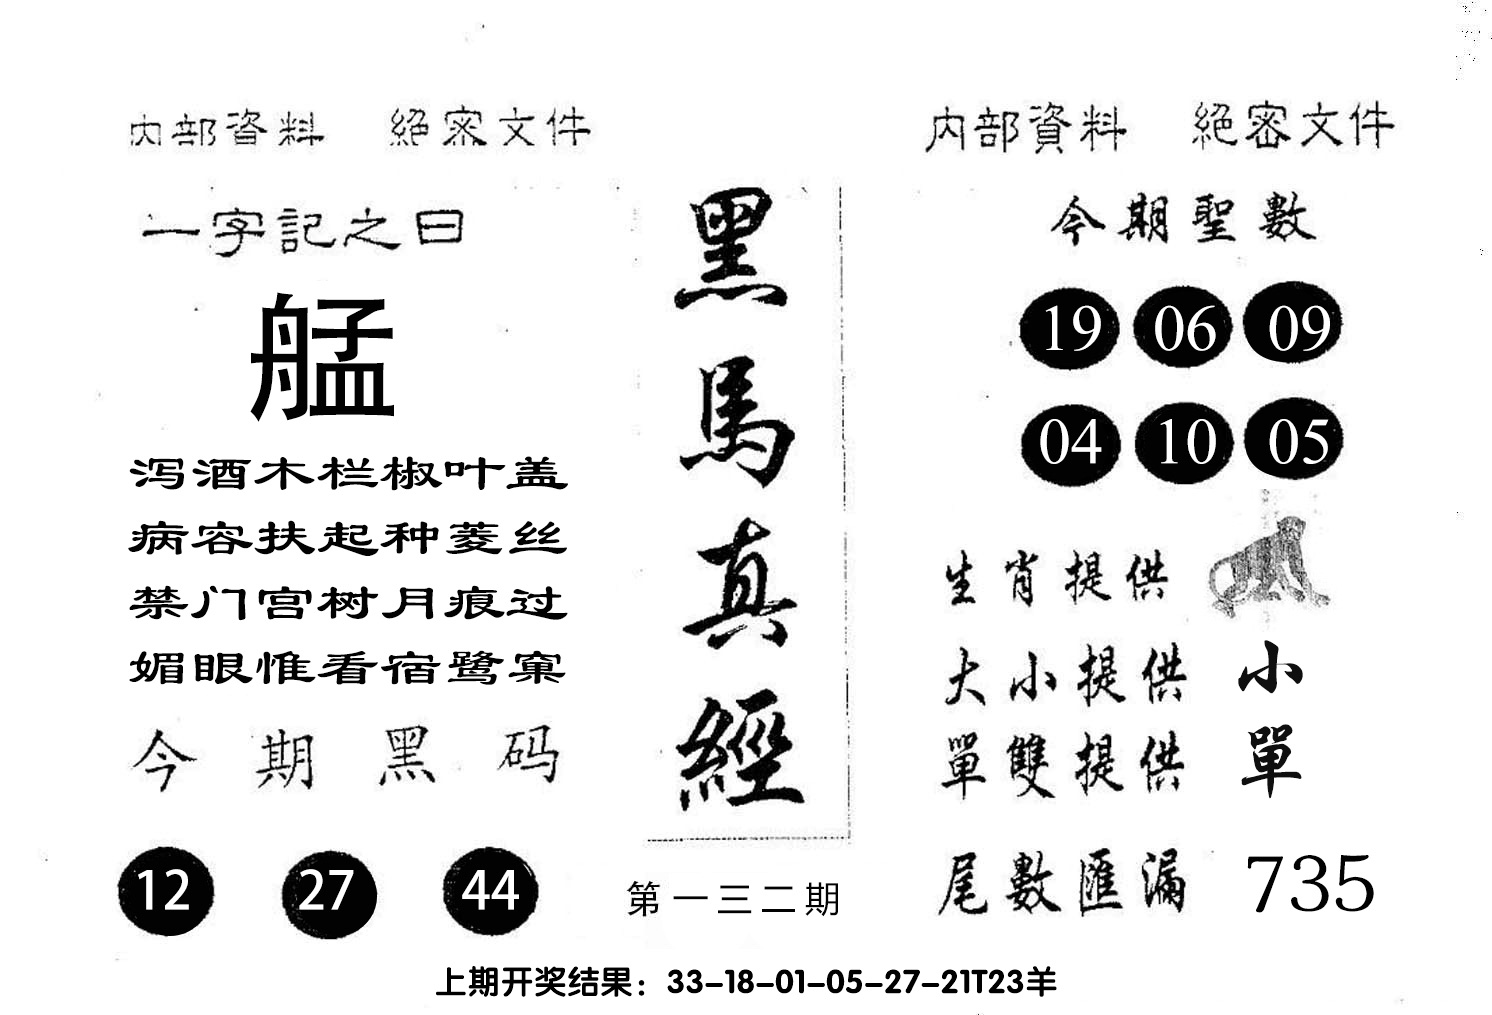 内部資料 絕密文件
一字記之曰
艋
泻酒木栏椒叶盖
病容扶起种菱丝
禁门宫树月痕过
媚眼惟看宿鹭窠
今期黑码
12 27 44
黑馬真經
第一三二期
内部資料 絕密文件
今期聖數
19 06 09
04 10 05
生肖提供
大小提供 小
單雙提供 單
尾數匯漏 735
上期开奖结果：33-18-01-05-27-21T23羊